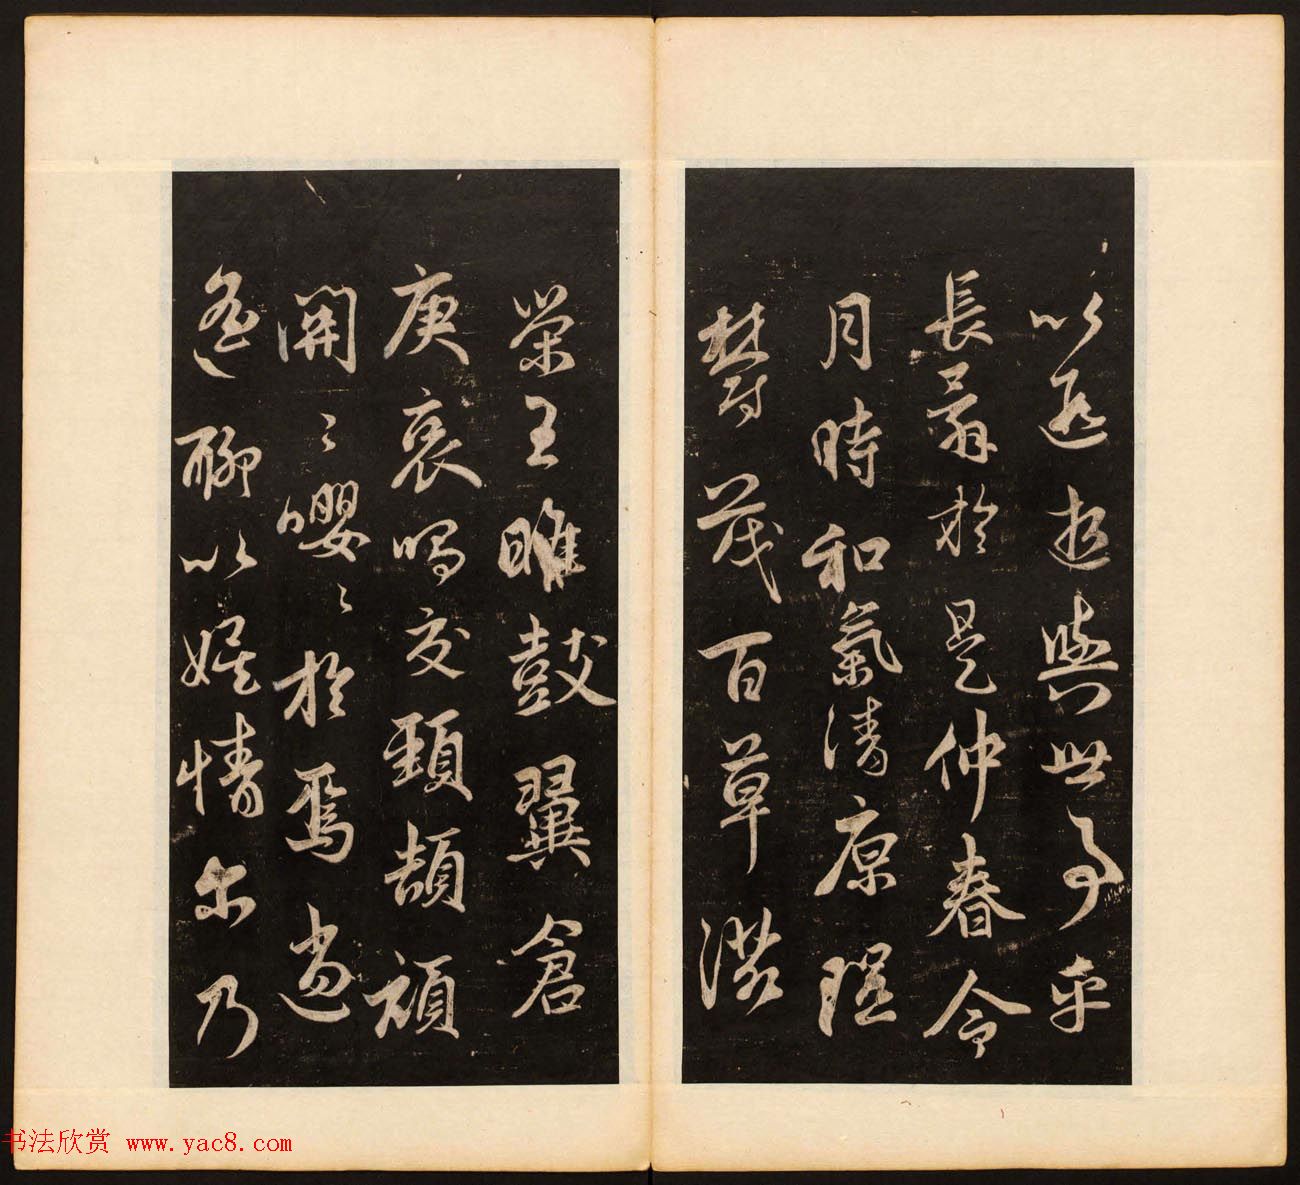 以遐逝與世事乎
長辭於是仲春令
月時和氣清原隰
鬱茂百草滋
榮王雎鼓翼倉
庚哀鳴交頸頡頏
關〻嚶〻於焉逍
遙聊以娛情尔乃
书法欣赏 www.yac8.com